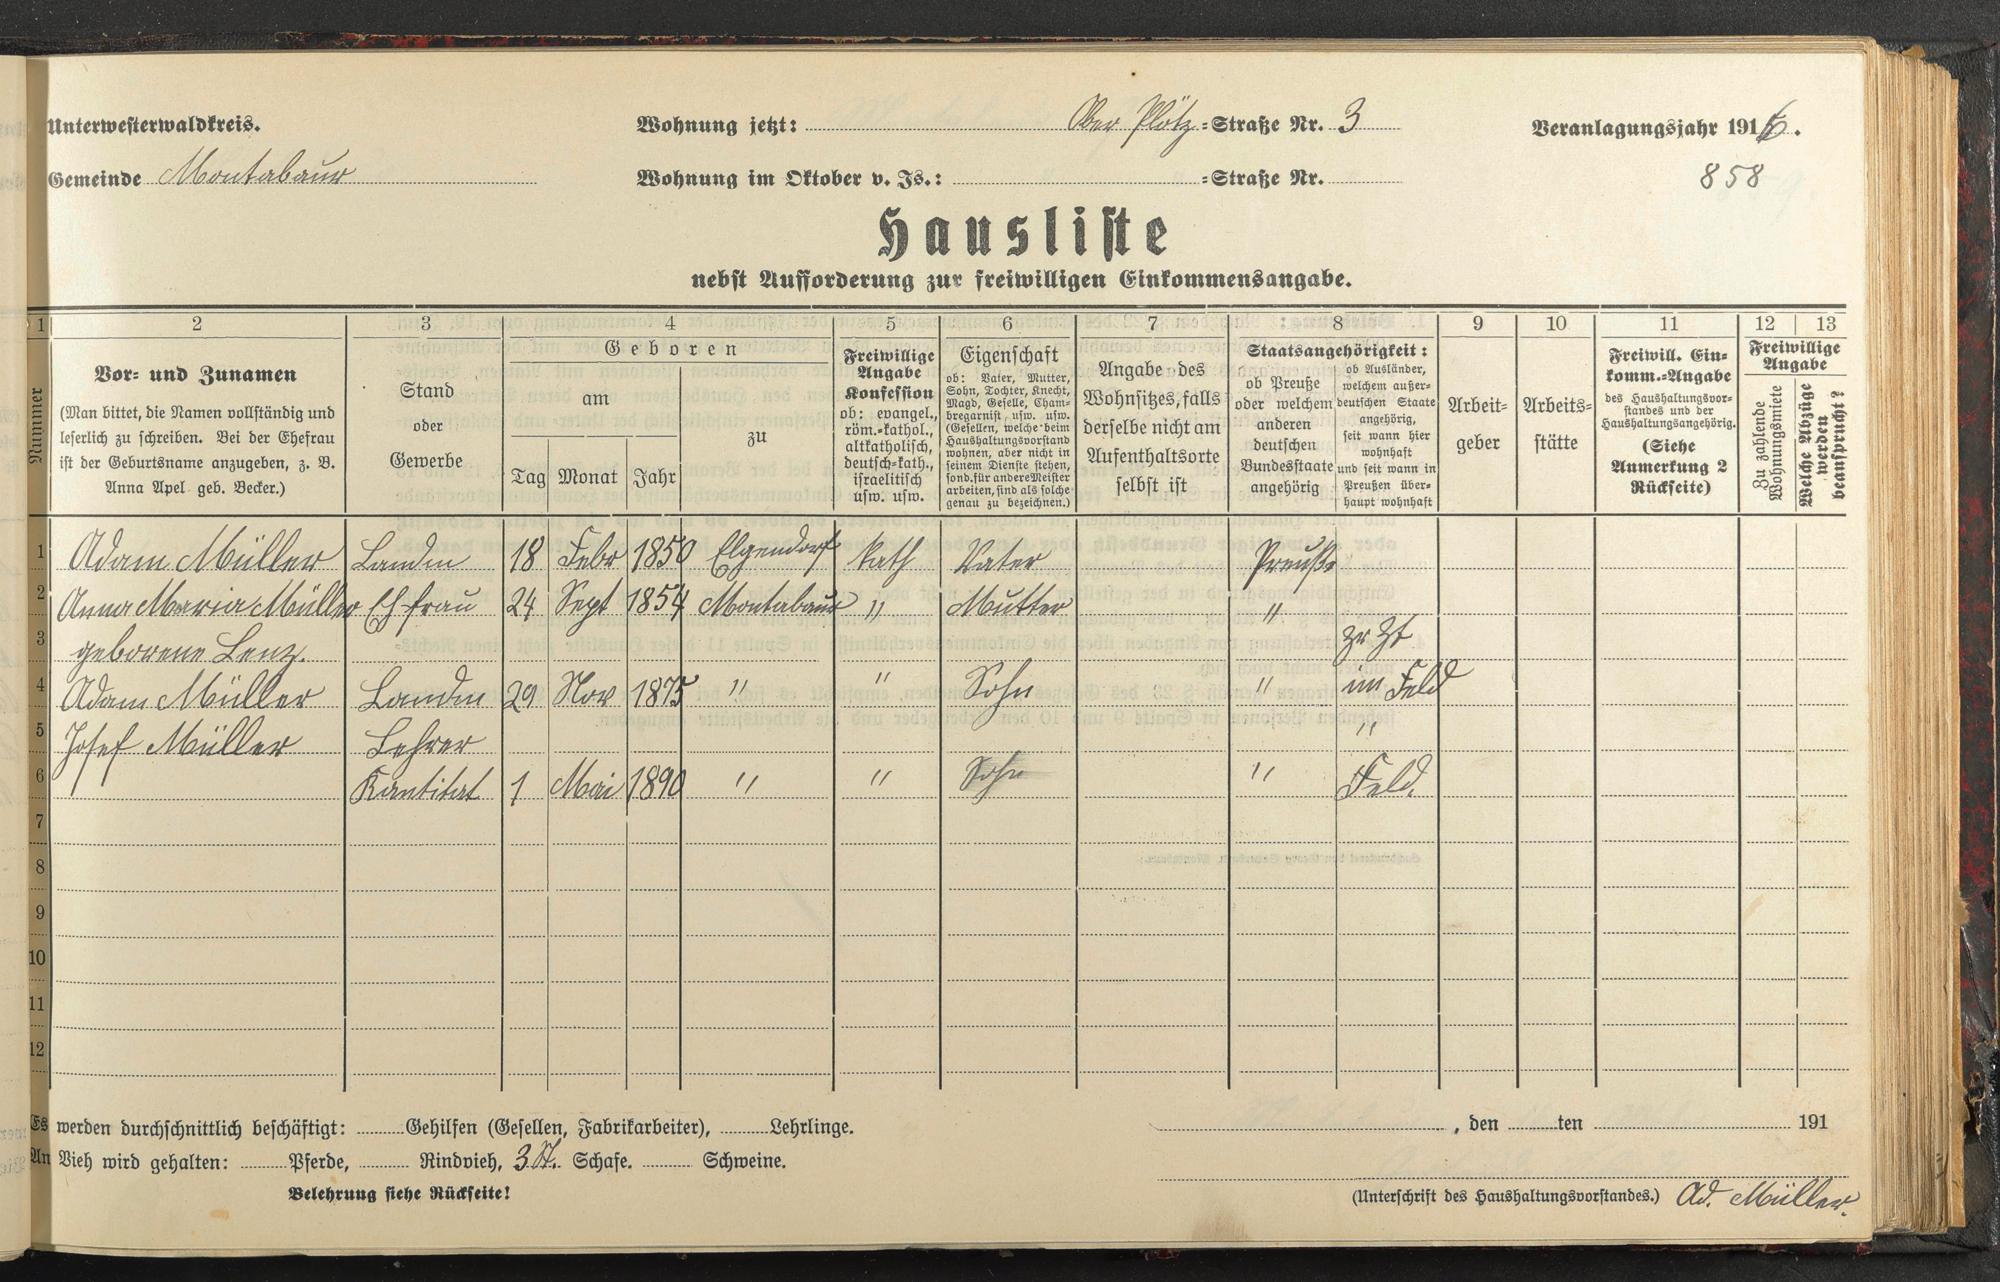 Unterwesterwaldkreis.
Wohnung jetzt: Ober Plötz-Straße Nr. 3
Veranlagungsjahr 1916.
Gemeinde Montabaur
Wohnung im Oktober v. Js.: -Straße Nr.
858
Hausliste
nebst Aufforderung zur freiwilligen Einkommensangabe.
1 2 3 4 5 6 7 8 9 10 11 12 13
Nummer
Vor- und Zunamen
(Man bittet, die Namen vollständig und
leserlich zu schreiben. Bei der Ehefrau
ist der Geburtsname anzugeben, z. B.
Anna Apel geb. Becker.)
Stand
oder
Gewerbe
Geboren
am
Tag Monat Jahr
zu
Freiwillige
Angabe
Konfession
ob: evangel.,
röm.-kathol.,
altkatholisch,
deutsch-kath.,
israelitisch
usw. usw.
Eigenschaft
ob: Vater, Mutter,
Sohn, Tochter, Knecht,
Magd, Geselle, Cham-
bregarnist, usw. usw.
(Gesellen, welche beim
Haushaltungsvorstand
wohnen, aber nicht in
seinem Dienste stehen,
sond. für andere Meister
arbeiten, sind als solche
genau zu bezeichnen.)
Angabe des
Wohnsitzes, falls
derselbe nicht am
Aufenthaltsorte
selbst ist
Staatsangehörigkeit:
ob Preuße
oder welchem
anderen
deutschen
Bundesstaate
angehörig
ob Ausländer,
welchem außer-
deutschen Staate
angehörig,
seit wann hier
wohnhaft
und seit wann in
Preußen über-
haupt wohnhaft
Arbeit-
geber
Arbeits-
stätte
Freiwill. Ein-
komm.-Angabe
des Haushaltungsvor-
standes und der
Haushaltungsangehörig.
(Siehe
Anmerkung 2
Rückseite)
Freiwillige
Angabe
Zu zahlende
Wohnungsmiete
Welche Abzüge
werden
beansprucht?
1 Adam Müller Landm 18 Febr 1850 Elgendorf kath Vater Preuße
2 Anna Maria Müller Ehfrau 24 Sept 1854 Montabaur " Mutter "
3 geborene Lenz. zr Zt
4 Adam Müller Landm 29 Nov 1875 " " Sohn " im Feld
5 Josef Müller Lehrer "
6 Kantitat 1 Mai 1890 " " Sohn " Feld.
7
8
9
10
11
12
Es werden durchschnittlich beschäftigt: Gehilfen (Gesellen, Fabrikarbeiter), Lehrlinge.
, den ten 191
An Vieh wird gehalten: Pferde, Rindvieh, 3 St. Schafe. Schweine.
Belehrung siehe Rückseite!
(Unterschrift des Haushaltungsvorstandes.) Ad. Müller.